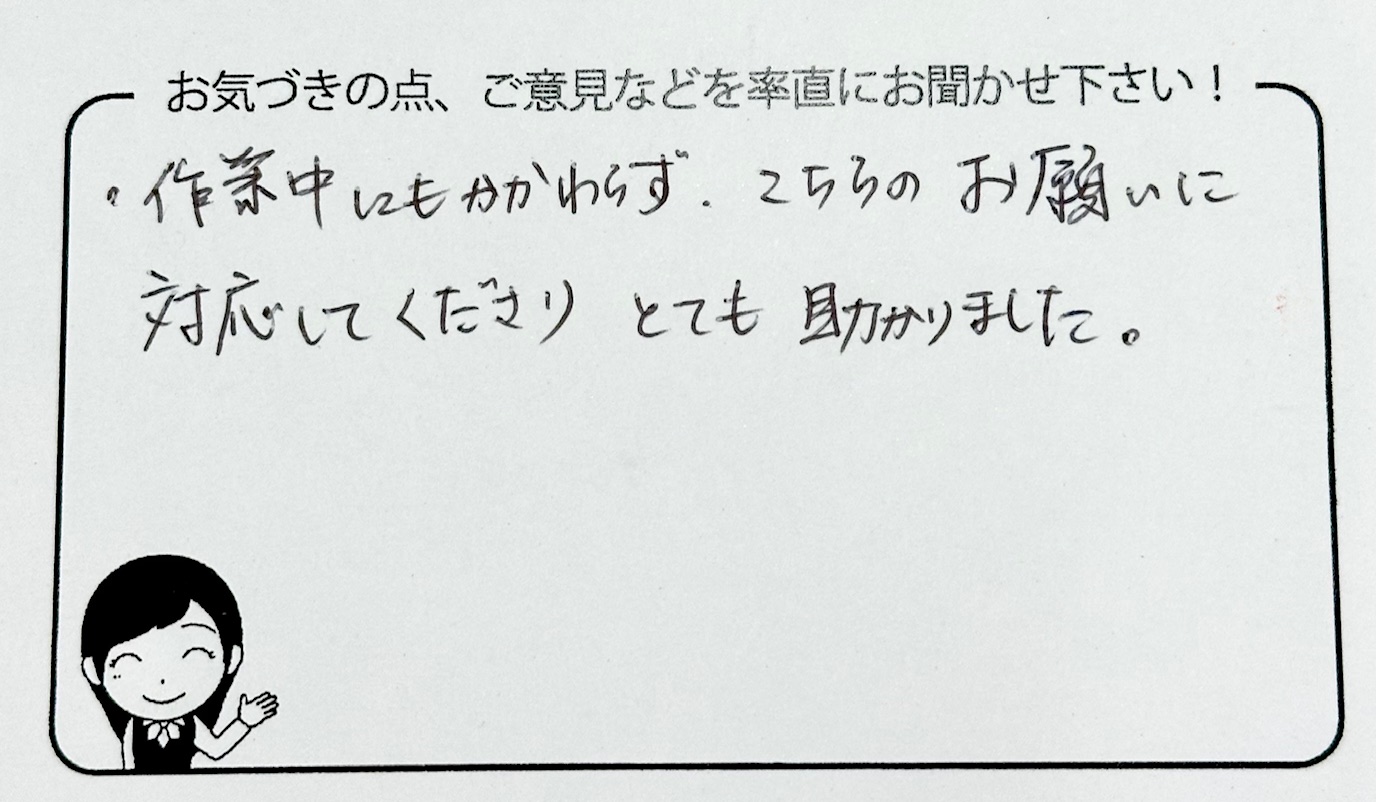 お気づきの点、ご意見などを率直にお聞かせ下さい！
・作業中にもかかわらず、こちらのお願いに
対応してくださり とても 助かりました。